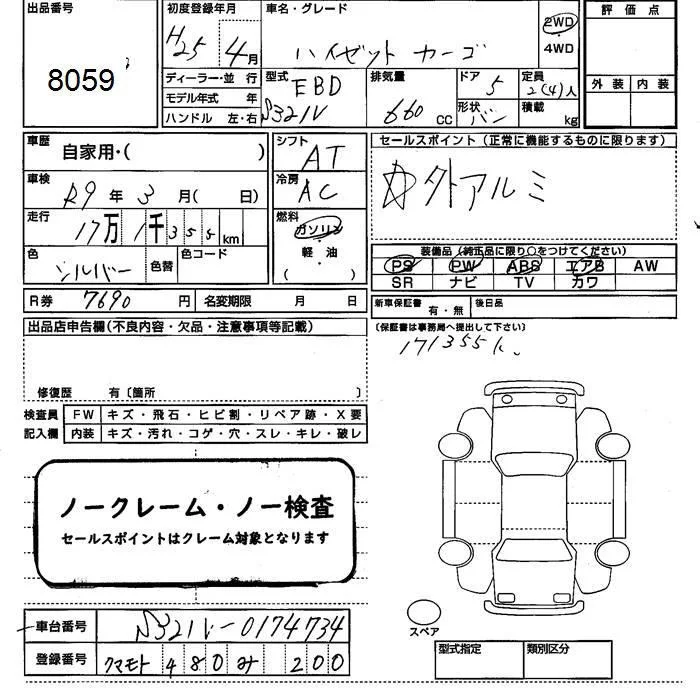 出品番号 8059
初度登録年月 H25年 4月
車名・グレード ハイゼット カーゴ
2WD
4WD
評価点
外装 内装
ディーラー・並 行
モデル年式 年
ハンドル 左・右
型式 EBD
S321V
排気量 660 CC
ドア 5
形状 バン
定員 2(4)人
積載 kg
車歴 自家用・( )
シフト AT
車検 R9年 3月( 日)
冷房 AC
走行 17万 1千355km
燃料 ガソリン
軽・油
( )
色 シルバー 色替 色コード
R券 7690円 名変期限 月 日
セールスポイント (正常に機能するものに限ります)
外アルミ
装備品 (純正品に限り○をつけてください)
PS PW ABS エアB AW
SR ナビ TV カワ
新車保証書 有・無 後日品
(保証書は事務局へ提出して下さい)
171355k
出品店申告欄(不良内容・欠品・注意事項等記載)
修復歴 有〔箇所 〕
検査員 FW キズ・飛石・ヒビ割・リペア跡・X要
記入欄 内装 キズ・汚れ・コゲ・穴・スレ・キレ・破レ
ノークレーム・ノー検査
セールスポイントはクレーム対象となります
スペア
車台番号 S321V-0174734
登録番号 クマモト 480 み 200
型式指定 類別区分